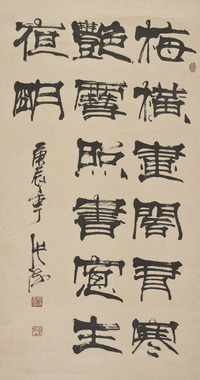 梅橫畫閣寒
艷雪照書窗生
夜明
庚辰